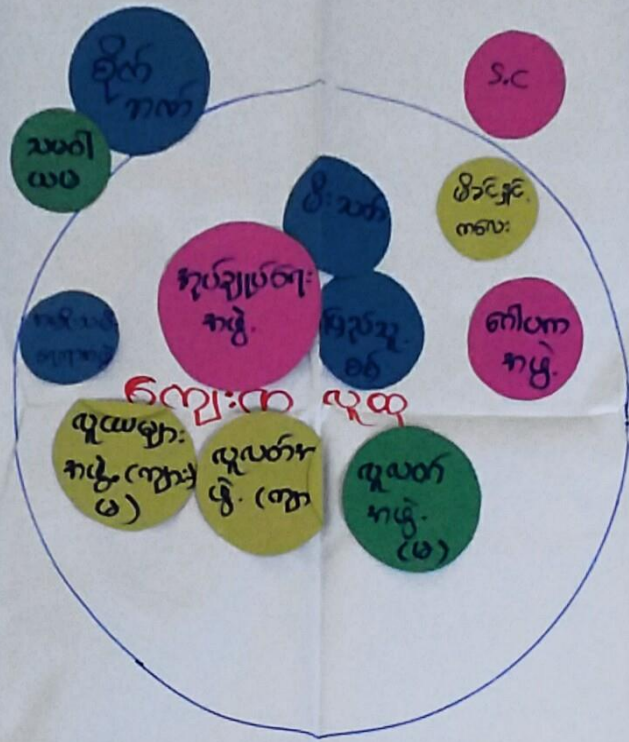 စိုက်
S.C
သမဝါ
ယမ
မီးသတ်
မိခင်နှင့်
ကလေး
အုပ်ချုပ်ရေး
အဖွဲ့
ပြည်သူ့
စစ်
ဂေါပက
အဖွဲ့
ကျေးရွာ လူထု
လူငယ်များ
အဖွဲ့ (ကျား၊
မ)
လူလတ်အ
ဖွဲ့ (ကျား
လူလတ်
အဖွဲ့
(မ)